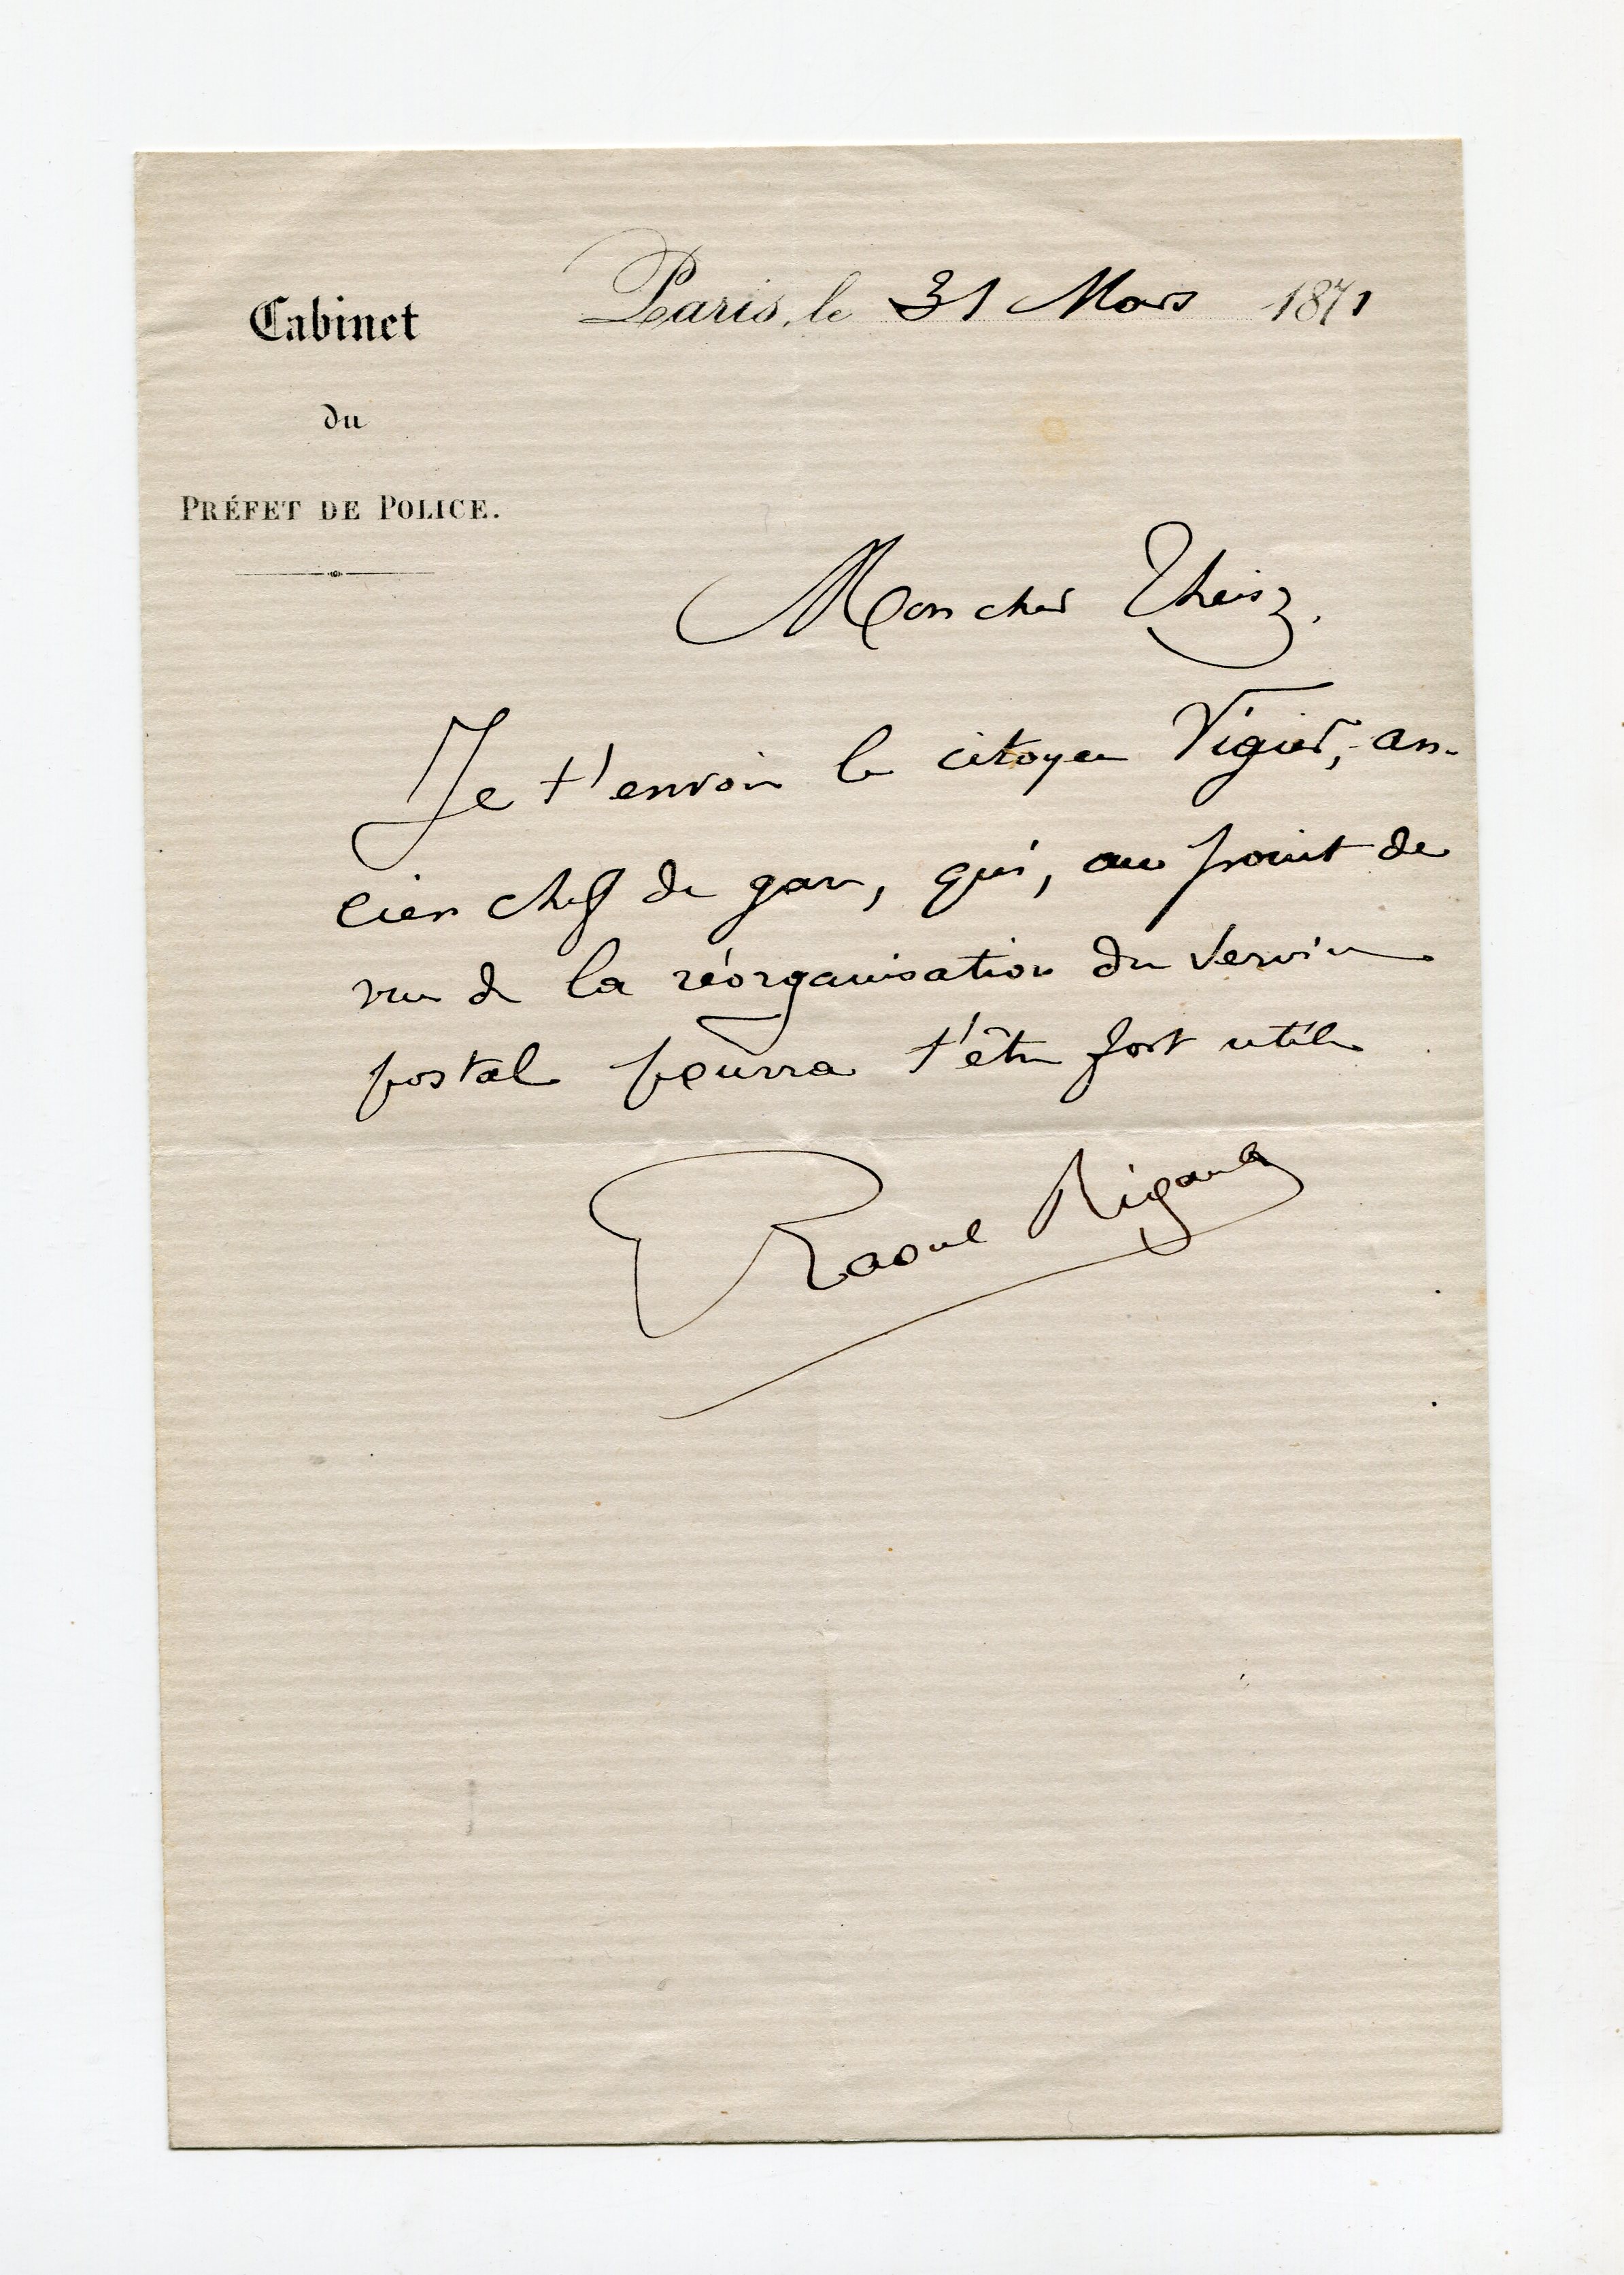 Cabinet
du
PRÉFET DE POLICE.
Paris, le 31 Mars 1871
Mon cher Theisz,
Je t'envoie le citoyen Vigier, an-
cien chef de gare, qui, au point de
vue de la réorganisation du service
postal pourra t'être fort utile
Raoul Rigault